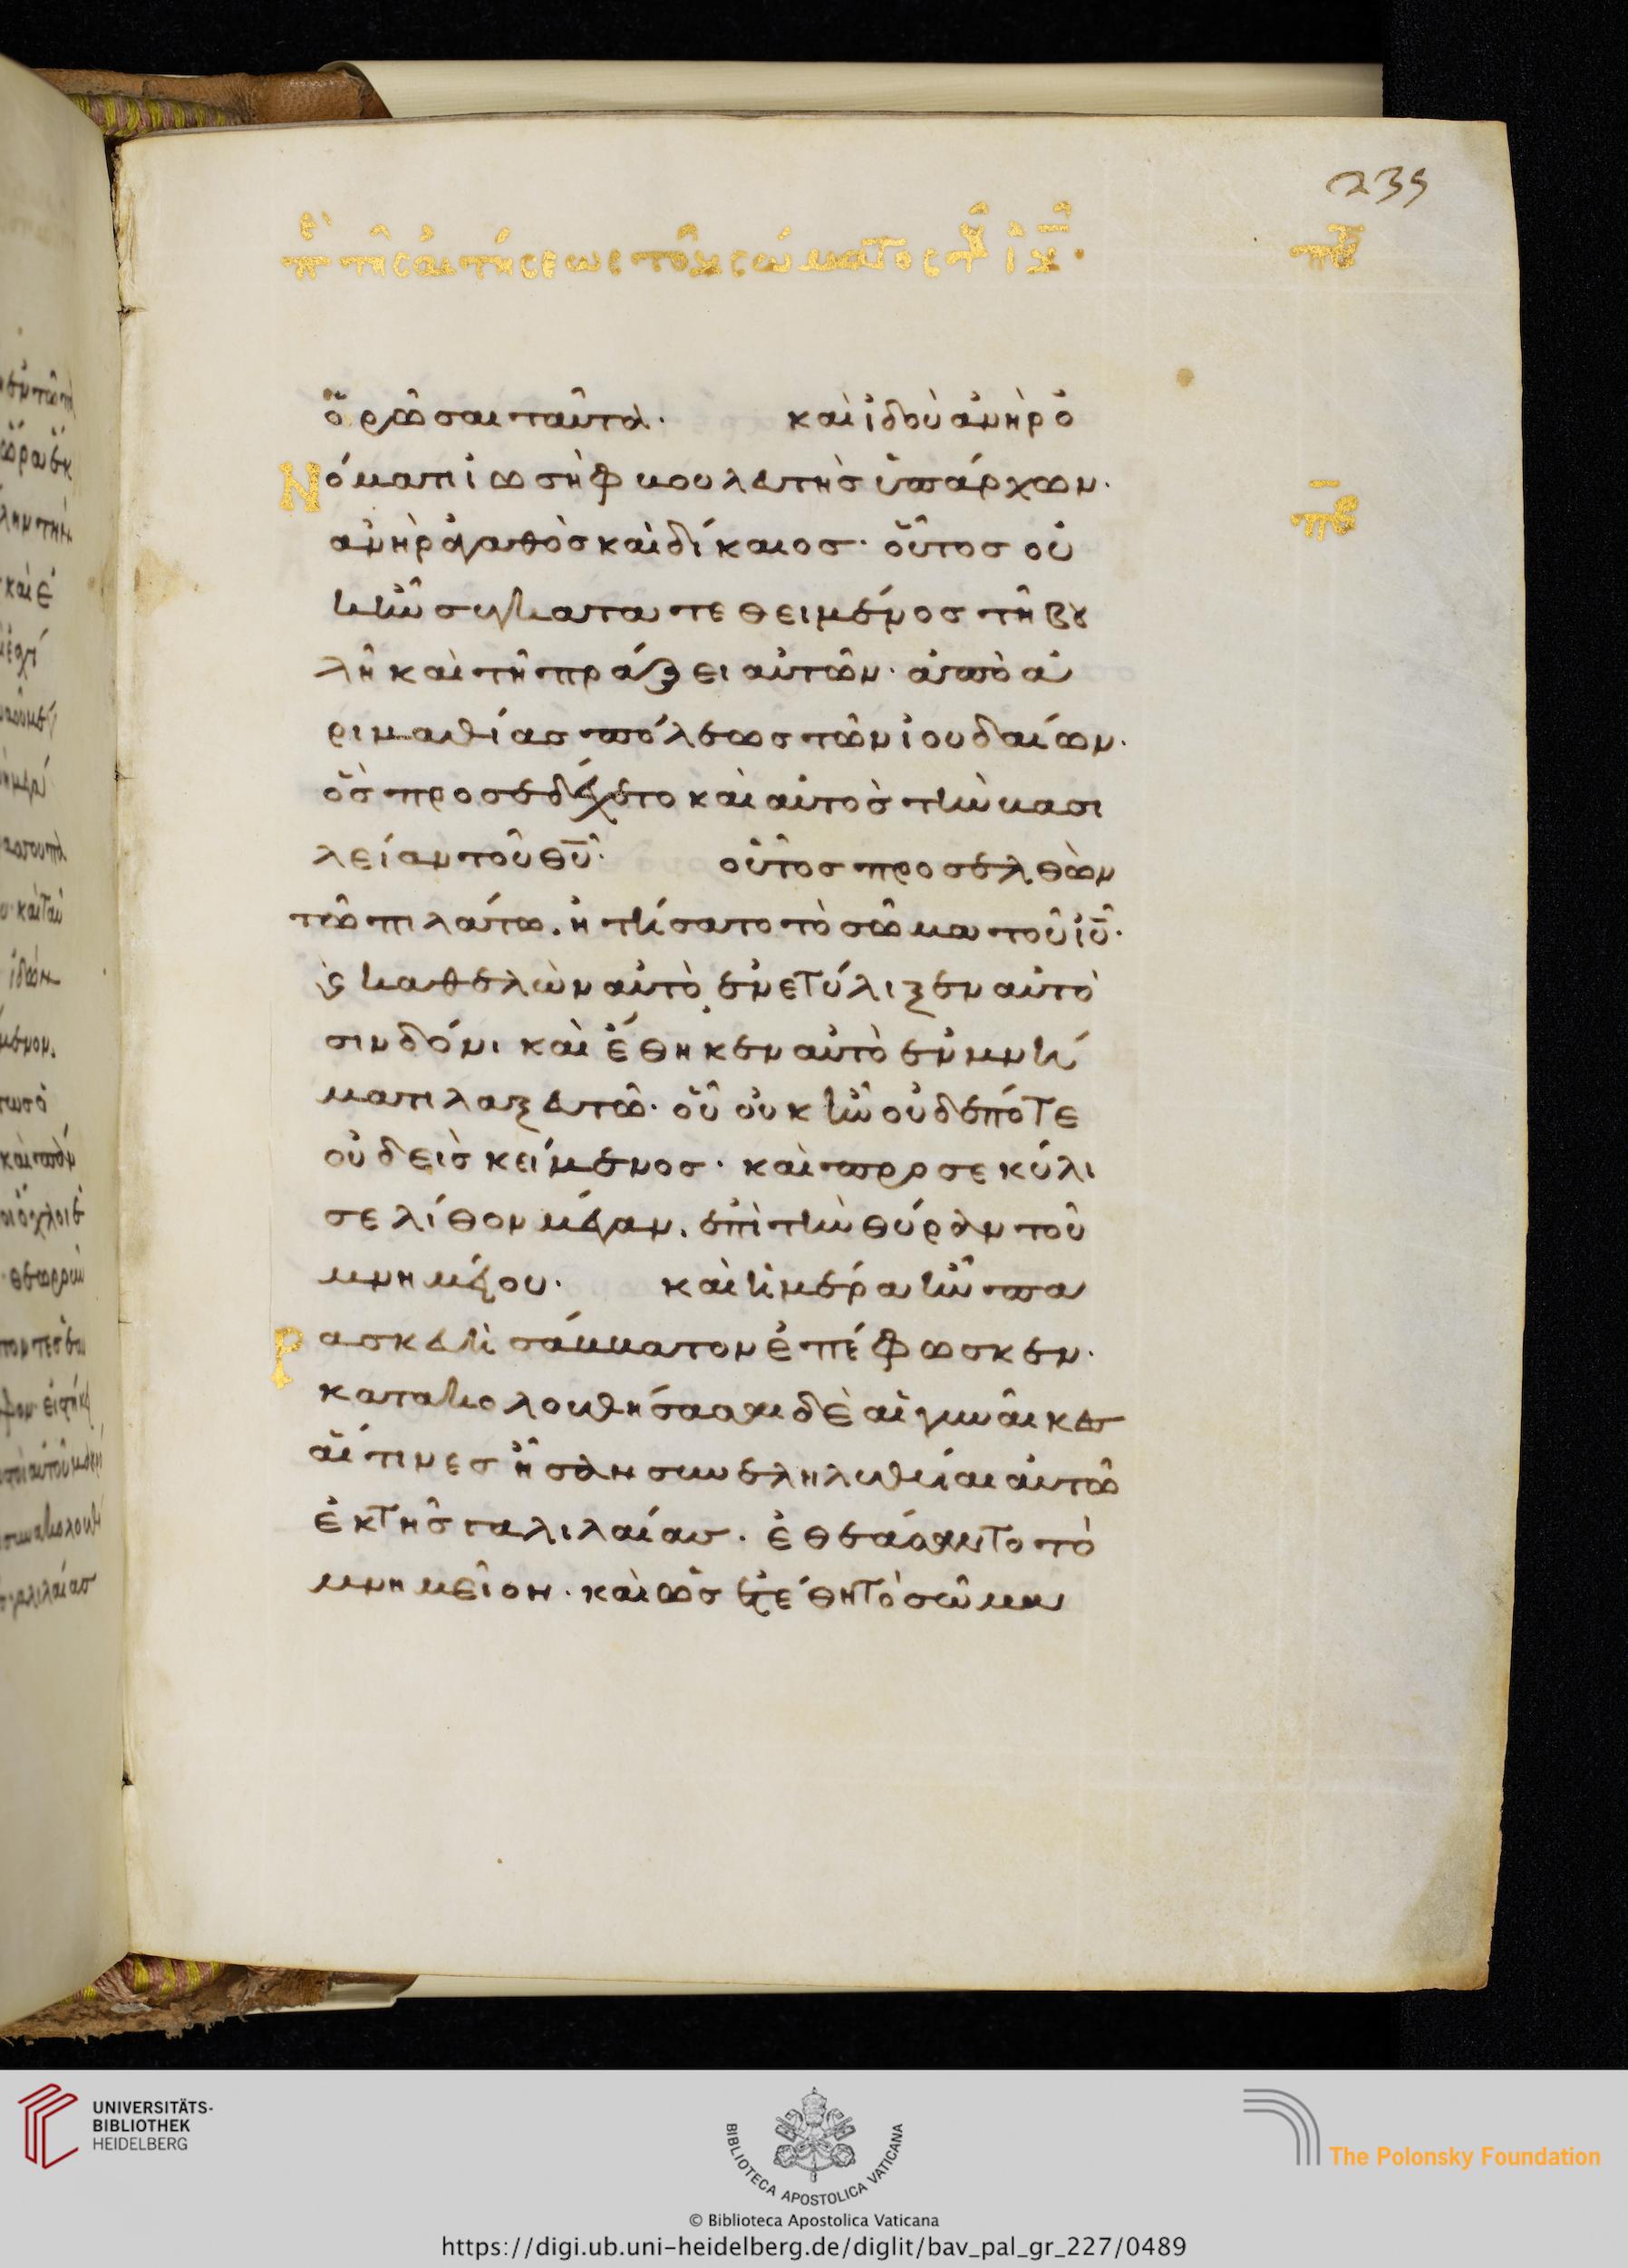 239
πε τῆς αἰτήσεως τοῦ σώματος τοῦ κυ ιυ χυ·
πβ
ὁρῶσαι ταῦτα· καὶ ἰδοὺ ἀνὴρ ὀ
Νόματι ἰωσὴφ βουλευτὴσ ὑπάρχων·
πβ
ἀνὴρ ἀγαθὸσ καὶ δίκαιοσ· οὗτοσ οὐ
κ ἦν συγκατατεθειμένοσ τῆ βου
λῆ καὶ τῆ πράξει αὐτῶν· ἀπὸ ἀ
ριμαθίασ πόλεωσ τῶν ἰουδαίων·
ὃσ προσεδέχετο καὶ αὐτὸσ τὴν βασι
λείαν τοῦ θυ· οὗτοσ προσελθὼν
τῶ πιλάτω. ἠτήσατο τὸ σῶμα τοῦ ιυ·
ϗ καθελὼν αὐτὸ ἐνετύλιξεν αὐτὸ
σινδόνι καὶ ἔθηκεν αὐτὸ ἐν μνή
ματι λαξευτῶ· οὗ οὐκ ἦν οὐδέποτε
οὐδεὶσ κείμενοσ· καὶ προσεκύλι
σε λίθον μέγαν. ἐπὶ τὴν θύραν τοῦ
μνημείου· καὶ ἡμέρα ἦν πα
Ρασκευὴ σάββατον ἐπέφωσκεν·
κατακολουθήσασαι δὲ αἱ γυναῖκεσ
αἵτινεσ ἦσαν συνεληλυθυίαι αὐτῶ
ἐκ τῆσ γαλιλαίασ· ἐθεάσαντο τὸ
μνημεῖον· καὶ ὡσ ἐτέθη τὸ σῶμα
UNIVERSITÄTS-
BIBLIOTHEK
HEIDELBERG
BIBLIOTECA APOSTOLICA VATICANA
The Polonsky Foundation
© Biblioteca Apostolica Vaticana
https://digi.ub.uni-heidelberg.de/diglit/bav_pal_gr_227/0489